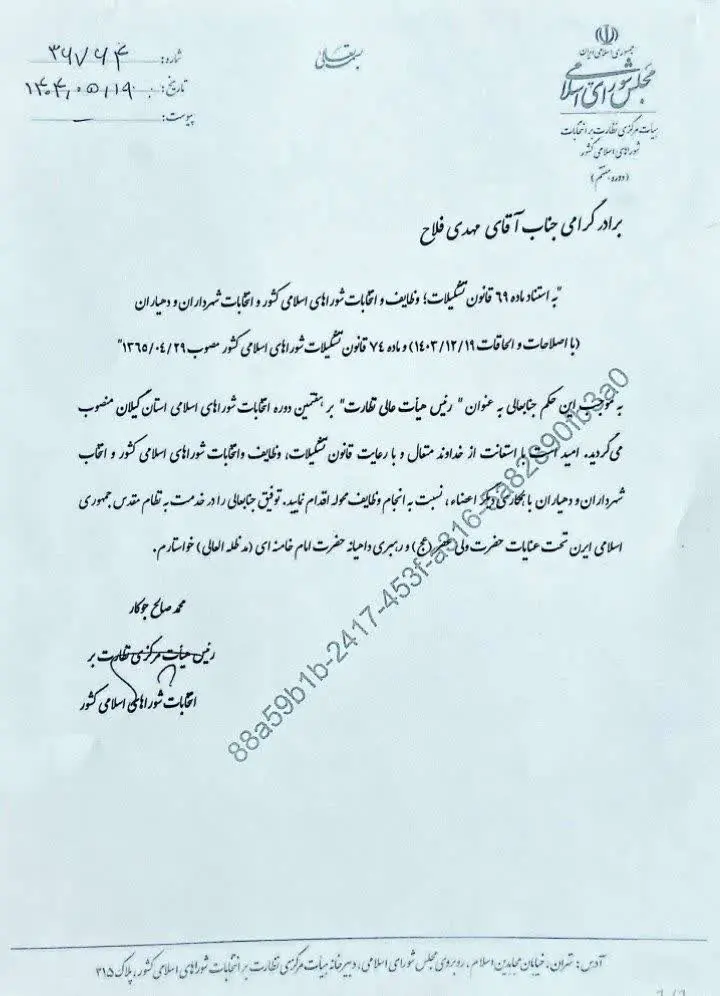 جمهوری اسلامی ایران
مجلس شورای اسلامی
هیأت مرکزی نظارت بر انتخابات
شوراهای اسلامی کشور
(دوره هفتم)
بسمه تعالی
شماره: ۳۶۷۶۴
تاریخ: ۱۴۰۴,۰۵,۱۹
پیوست: ــ
برادر گرامی جناب آقای مهدی فلاح
"به استناد ماده ۶۹ قانون تشکیلات؛ وظایف و انتخابات شوراهای اسلامی کشور و انتخابات شهرداران و دهیاران
(با اصلاحات و الحاقات ۱۴۰۳/۱۲/۱۹) و ماده ۷۴ قانون تشکیلات شوراهای اسلامی کشور مصوب ۱۳۶۵/۰۴/۲۹"
به موجب این حکم جنابعالی به عنوان " رئیس هیأت عالی نظارت" بر هفتمین دوره انتخابات شوراهای اسلامی استان گیلان منصوب
می گردید. امید است با استعانت از خداوند متعال و با رعایت قانون تشکیلات، وظایف وانتخابات شوراهای اسلامی کشور و انتخاب
شهرداران و دهیاران با همکاری دیگر اعضاء، نسبت به انجام وظایف محوله اقدام نمایید. توفیق جنابعالی را در خدمت به نظام مقدس جمهوری
اسلامی ایرن تحت عنایات حضرت ولی عصر (عج) و رهبری داهیانه حضرت امام خامنه ای (مدظله العالی) خواستارم.
محمد صالح جوکار
رئیس هیأت مرکزی نظارت بر
انتخابات شوراهای اسلامی کشور
آدرس: تهران، خیابان مجاهدین اسلام، روبروی مجلس شورای اسلامی، دبیرخانه هیأت مرکزی نظارت بر انتخابات شوراهای اسلامی کشور، پلاک ۳۱۵